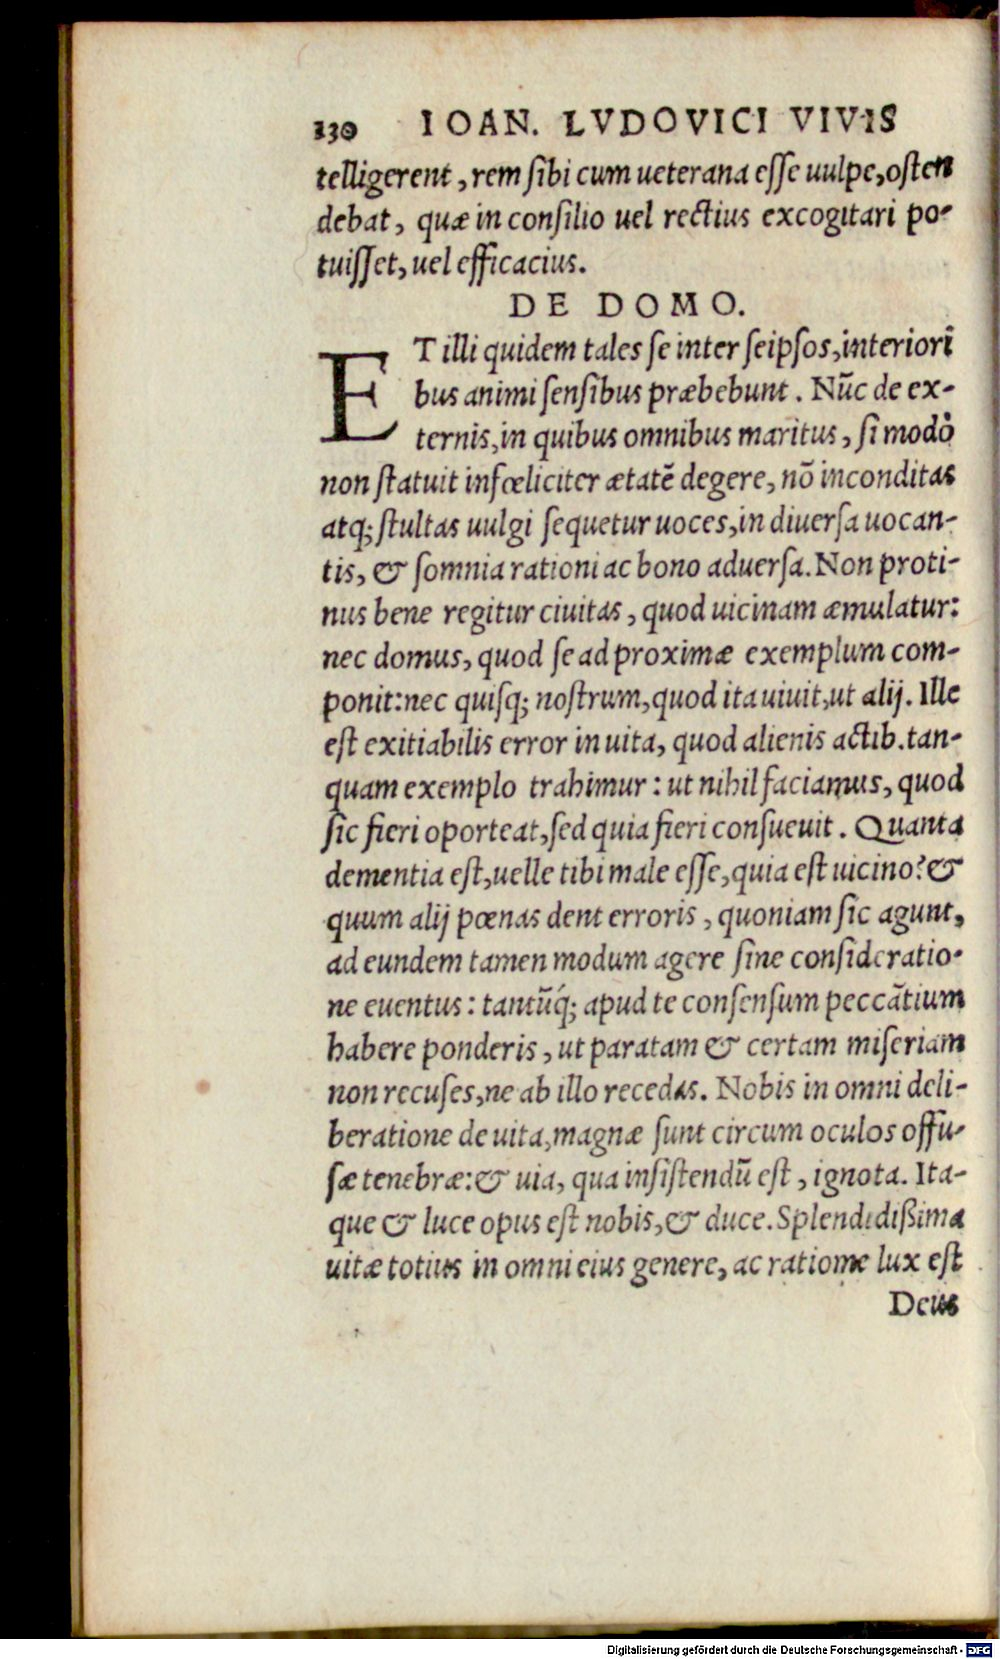 130 IOAN. LVDOVICI VIVIS
telligerent, rem ſibi cum ueterana eſſe uulpe, oſten
debat, quæ in conſilio uel rectius excogitari po-
tuiſſet, uel efficacius.
DE DOMO.
ET illi quidem tales ſe inter ſeipſos, interiori
bus animi ſenſibus præbebunt. Nūc de ex-
ternis, in quibus omnibus maritus, ſi modò
non ſtatuit infœliciter ætatē degere, nō inconditas
atq; ſtultas uulgi ſequetur uoces, in diuerſa uocan-
tis, & ſomnia rationi ac bono aduerſa. Non proti-
nus bene regitur ciuitas, quod uicinam æmulatur:
nec domus, quod ſe ad proximæ exemplum com-
ponit: nec quiſq; noſtrum, quod ita uiuit, ut alij. Ille
eſt exitiabilis error in uita, quod alienis actib. tan-
quam exemplo trahimur: ut nihil faciamus, quod
ſic fieri oporteat, ſed quia fieri conſueuit. Quanta
dementia eſt, uelle tibi male eſſe, quia eſt uicino? &
quum alij pœnas dent erroris, quoniam ſic agunt,
ad eundem tamen modum agere ſine conſideratio-
ne euentus: tantūq́; apud te conſenſum peccātium
habere ponderis, ut paratam & certam miſeriam
non recuſes, ne ab illo recedas. Nobis in omni deli-
beratione de uita, magnæ ſunt circum oculos offu-
ſæ tenebræ: & uia, qua inſiſtendū eſt, ignota. Ita-
que & luce opus eſt nobis, & duce. Splendidißima
uitæ totius in omni eius genere, ac ratione lux eſt
Deus
Digitalisierung gefördert durch die Deutsche Forschungsgemeinschaft - DFG